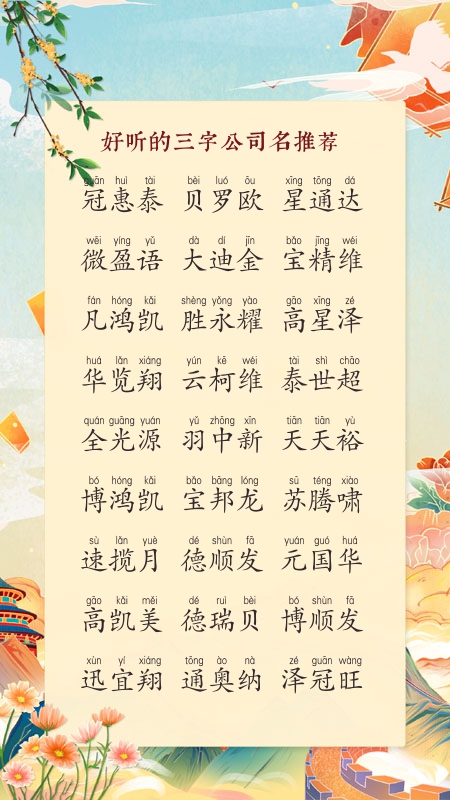 好听的三字公司名推荐
guān huì tài bèi luó ōu xīng tōng dá
冠惠泰 贝罗欧 星通达
wēi yíng yǔ dà dí jīn bǎo jīng wéi
微盈语 大迪金 宝精维
fán hóng kǎi shèng yǒng yào gāo xīng zé
凡鸿凯 胜永耀 高星泽
huá lǎn xiáng yún kē wéi tài shì chāo
华览翔 云柯维 泰世超
quán guāng yuán yǔ zhōng xīn tiān tiān yù
全光源 羽中新 天天裕
bó hóng kǎi bǎo bāng lóng sū téng xiào
博鸿凯 宝邦龙 苏腾啸
sù lǎn yuè dé shùn fā yuán guó huá
速揽月 德顺发 元国华
gāo kǎi měi dé ruì bèi bó shùn fā
高凯美 德瑞贝 博顺发
xùn yí xiáng tōng ào nà zé guān wàng
迅宜翔 通奥纳 泽冠旺